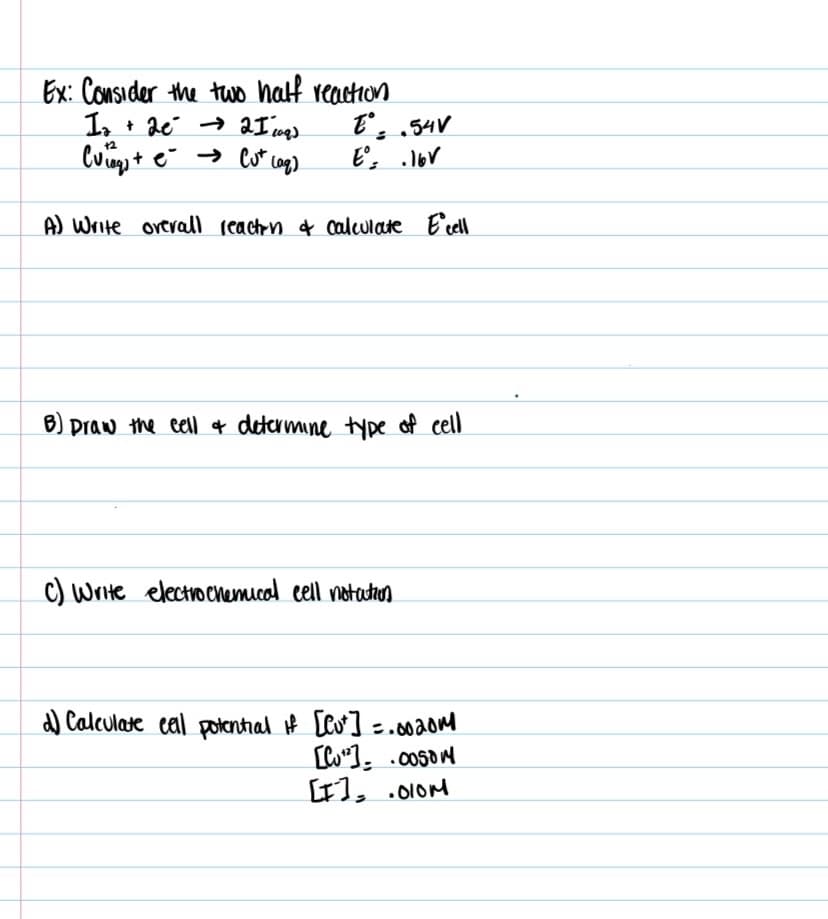 Ex: Consider the two half reaction
I₂ + 2e⁻ → 2I⁻(aq) E° = .54V
Cu⁺²(aq) + e⁻ → Cu⁺(aq) E° = .16V
A) Write overall reactn & calculate E°cell
B) Draw the cell & determine type of cell
C) Write electrochemical cell notation
d) Calculate cell potential if [Cu⁺] = .0020M
[Cu⁺²] = .0050M
[I⁻] = .010M